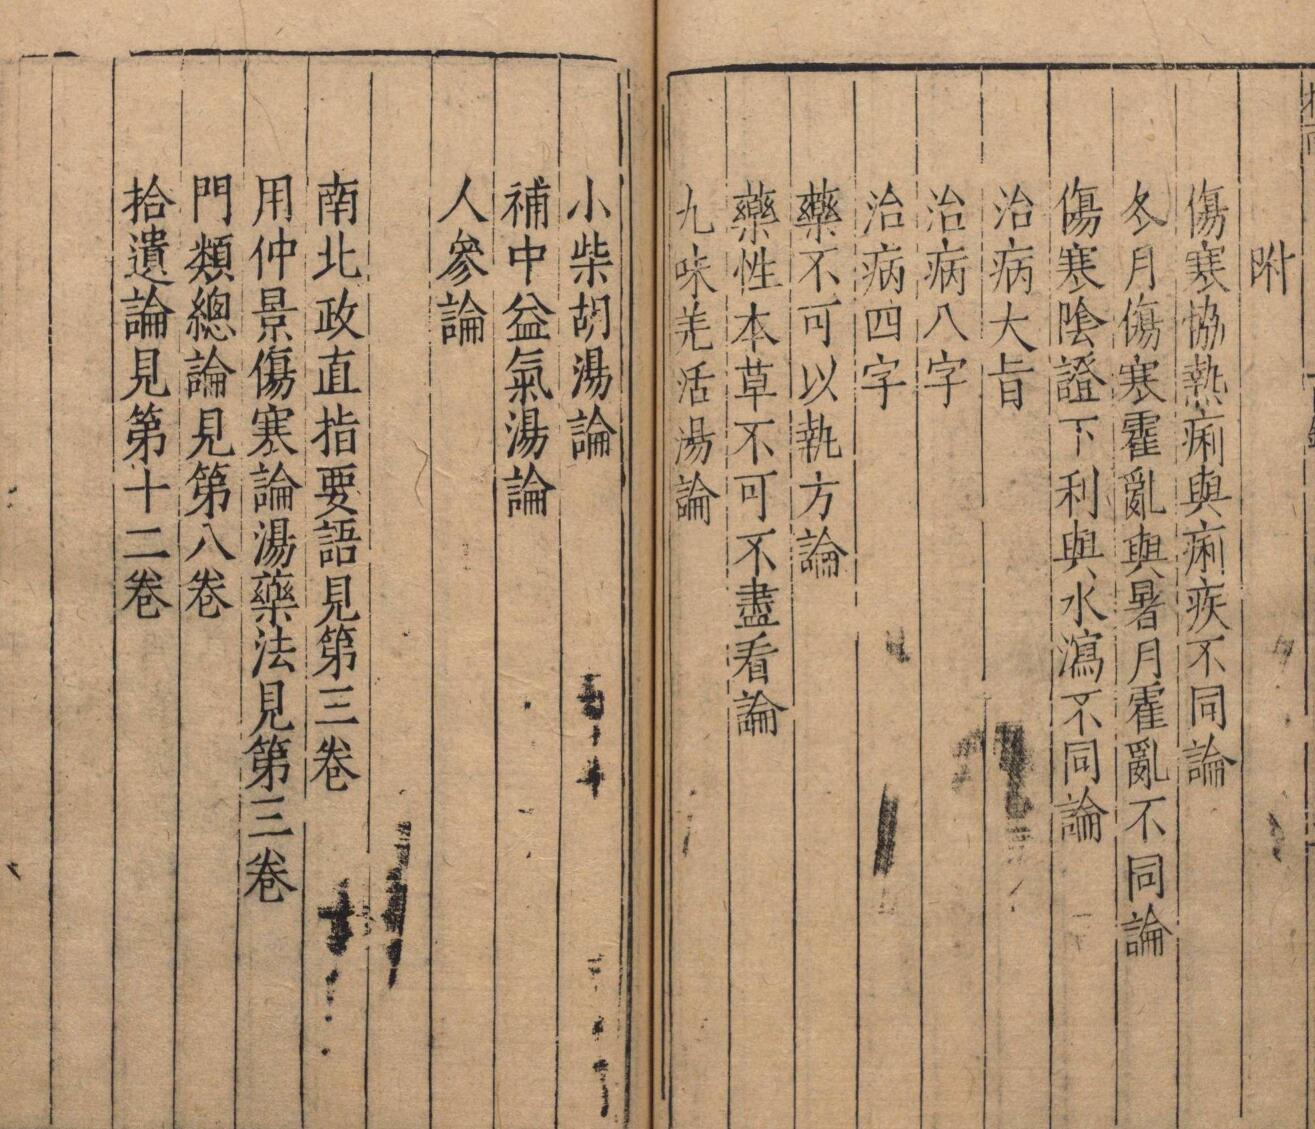 附
傷寒協熱痢與痢疾不同論
冬月傷寒霍亂與暑月霍亂不同論
傷寒陰證下利與水瀉不同論
治病大旨
治病八字
治病四字
藥不可以執方論
藥性本草不可不盡看論
九味羌活湯論
小柴胡湯論
補中益氣湯論
人參論
南北政直指要語見第三卷
用仲景傷寒論湯藥法見第三卷
門類總論見第八卷
拾遺論見第十二卷